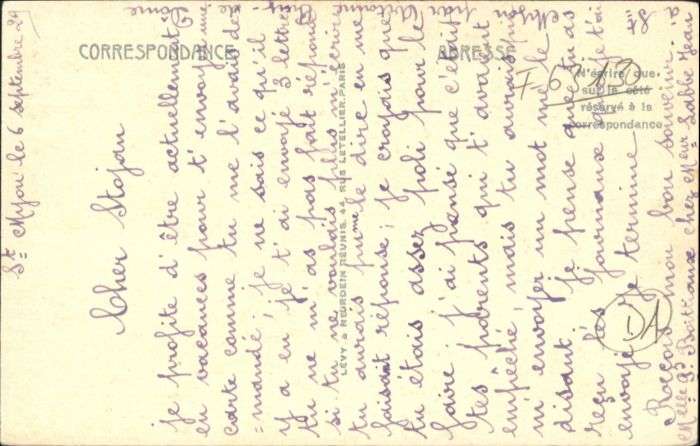 CORRESPONDANCE
ADRESSE
N'écrire que
sur le côté
réservé à la
correspondance
LÉVY & NEURDEIN RÉUNIS, 44, RUE LETELLIER, PARIS
F 63130
DA
St Myon le 6 septembre 29
Cher Stojan
je profite d'être actuellement
en vacances pour t'envoyer une
carte comme tu me l'avais de-
=mandé; je ne sais ce qu'il
y a eu je t'ai envoyé 3 lettres
tu ne m'as pas fait réponse
si tu ne voulais plus m'écrire
tu aurais pu me le dire en me
faisant réponse; je croyais que
tu étais assez poli pour le
faire j'ai pensé que c'était
tes parents qui t'avaient
empêché mais tu aurais pu
m'envoyer un mot me le
disant je pense que tu as
reçu les journaux que je t'ai
envoyé je termine
Reçois mon bon souvenir
Melle
chez Meur
à St Myon par